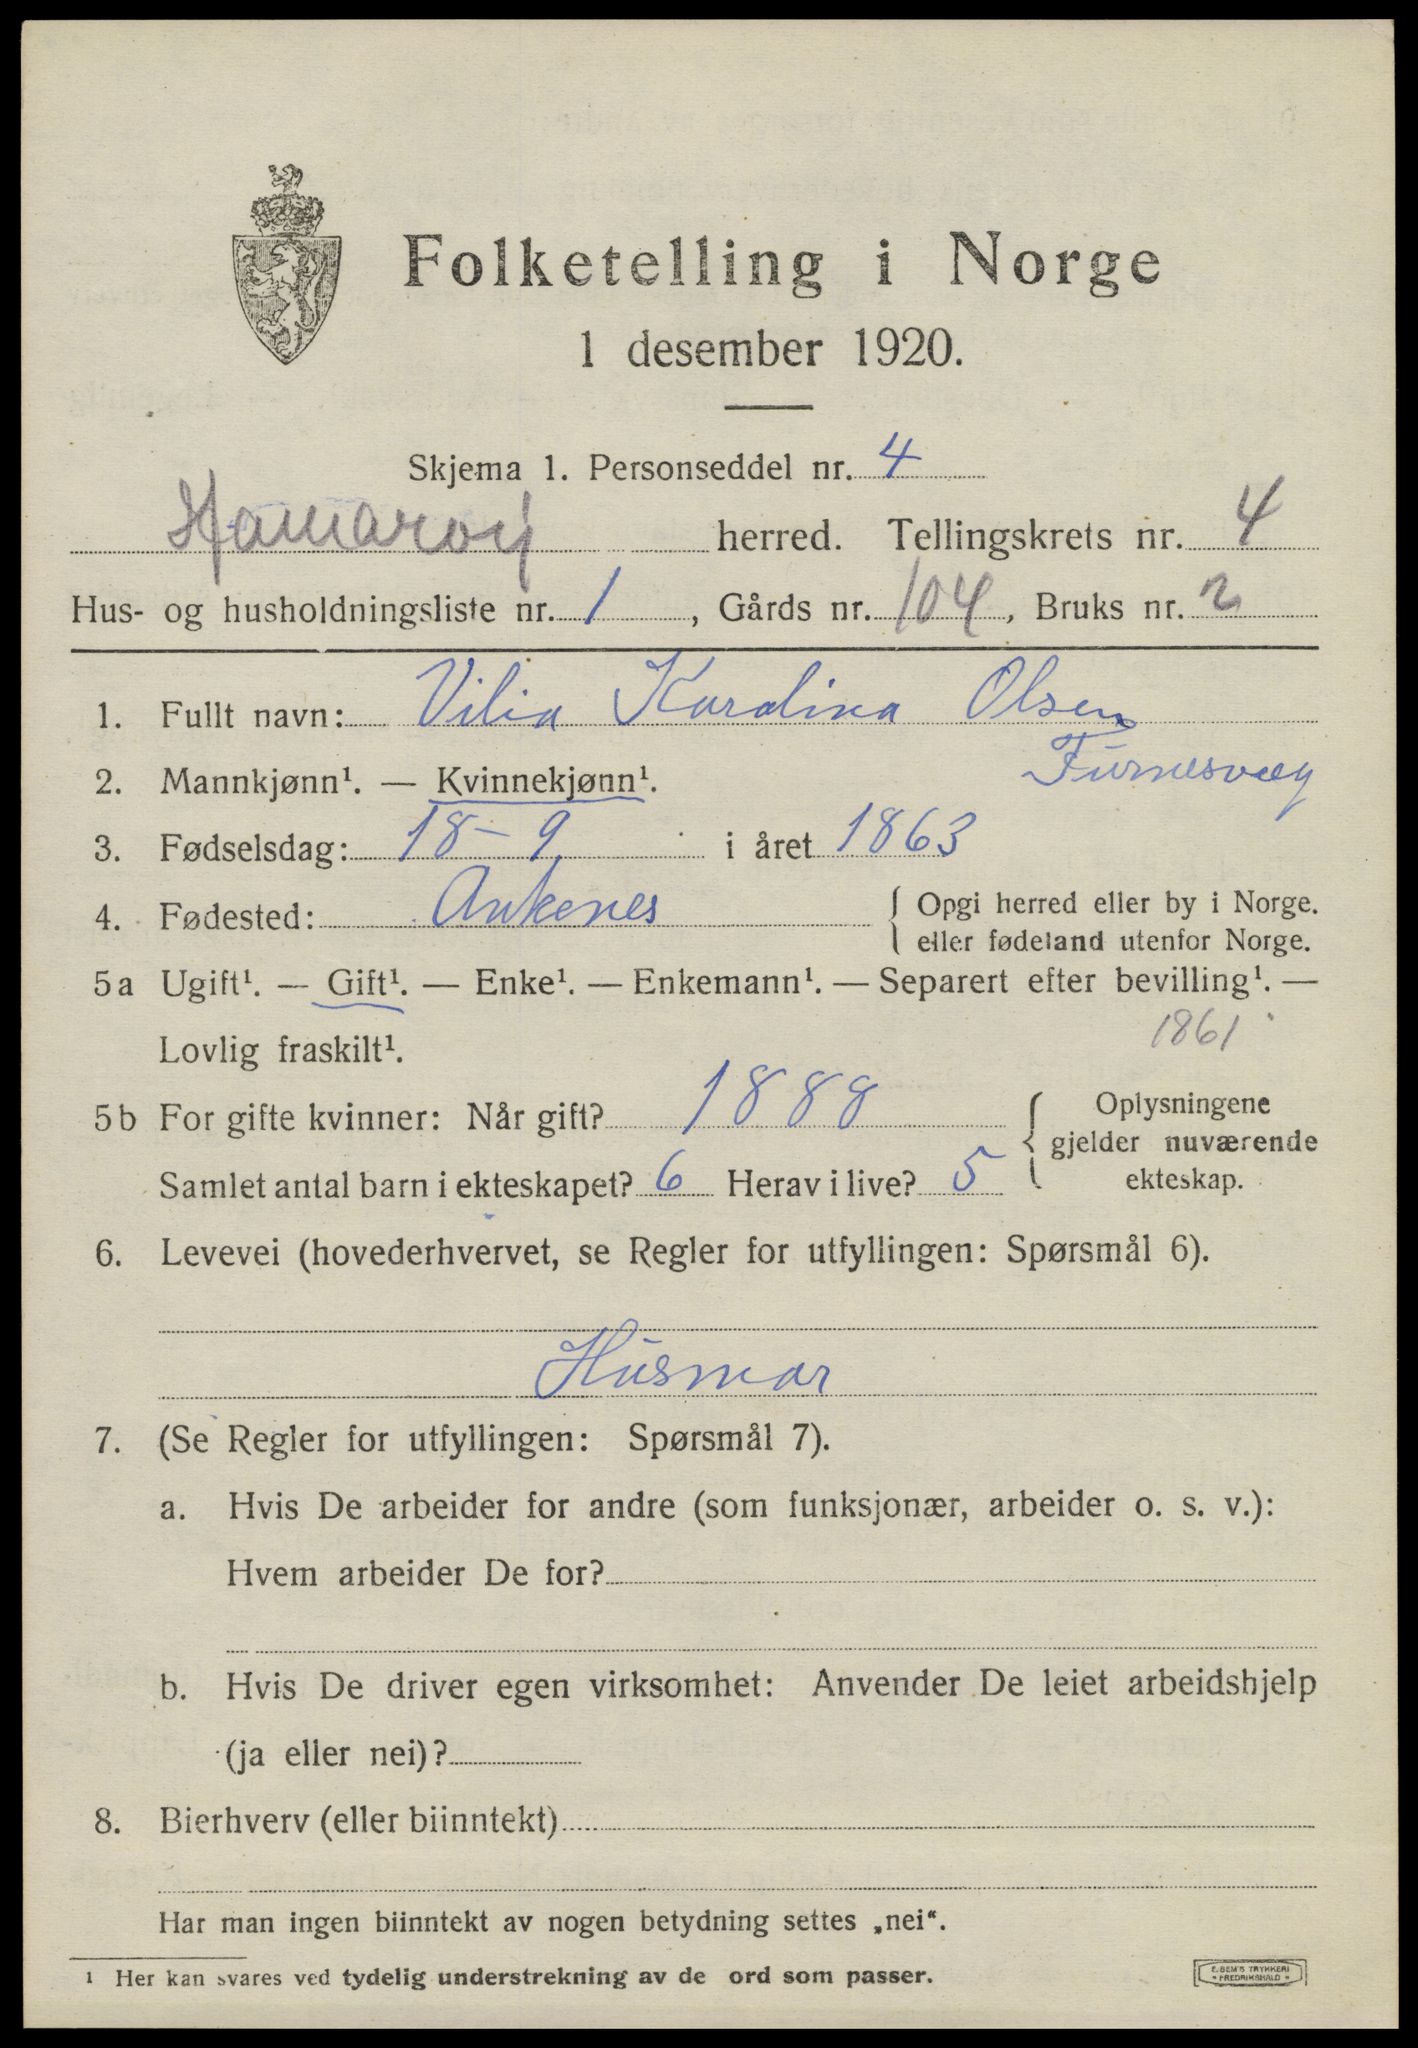 Folketelling i Norge
1 desember 1920.
Skjema 1. Personseddel nr. 4
Hamarøy herred. Tellingskrets nr. 4
Hus- og husholdningsliste nr. 1, Gårds nr. 104, Bruks nr. 2
1. Fullt navn: Vilia Karolina Olsen
Furnesvæg
2. Mannkjønn¹. — Kvinnekjønn¹.
3. Fødselsdag: 18 – 9 i året 1863
4. Fødested: Ankenes { Opgi herred eller by i Norge.
eller fødeland utenfor Norge.
5a Ugift¹. — Gift¹. — Enke¹. — Enkemann¹. — Separert efter bevilling¹. —
Lovlig fraskilt¹. 1861
5b For gifte kvinner: Når gift? 1888 { Oplysningene
gjelder nuværende
Samlet antal barn i ekteskapet? 6 Herav i live? 5 ekteskap.
6. Levevei (hovederhvervet, se Regler for utfyllingen: Spørsmål 6).
Husmor
7. (Se Regler for utfyllingen: Spørsmål 7).
a. Hvis De arbeider for andre (som funksjonær, arbeider o. s. v.):
Hvem arbeider De for?
b. Hvis De driver egen virksomhet: Anvender De leiet arbeidshjelp
(ja eller nei)?
8. Bierhverv (eller biinntekt)
Har man ingen biinntekt av nogen betydning settes „nei“.
¹ Her kan svares ved tydelig understrekning av de ord som passer.
E. SEM'S TRYKKERI
* FREDRIKSHALD *